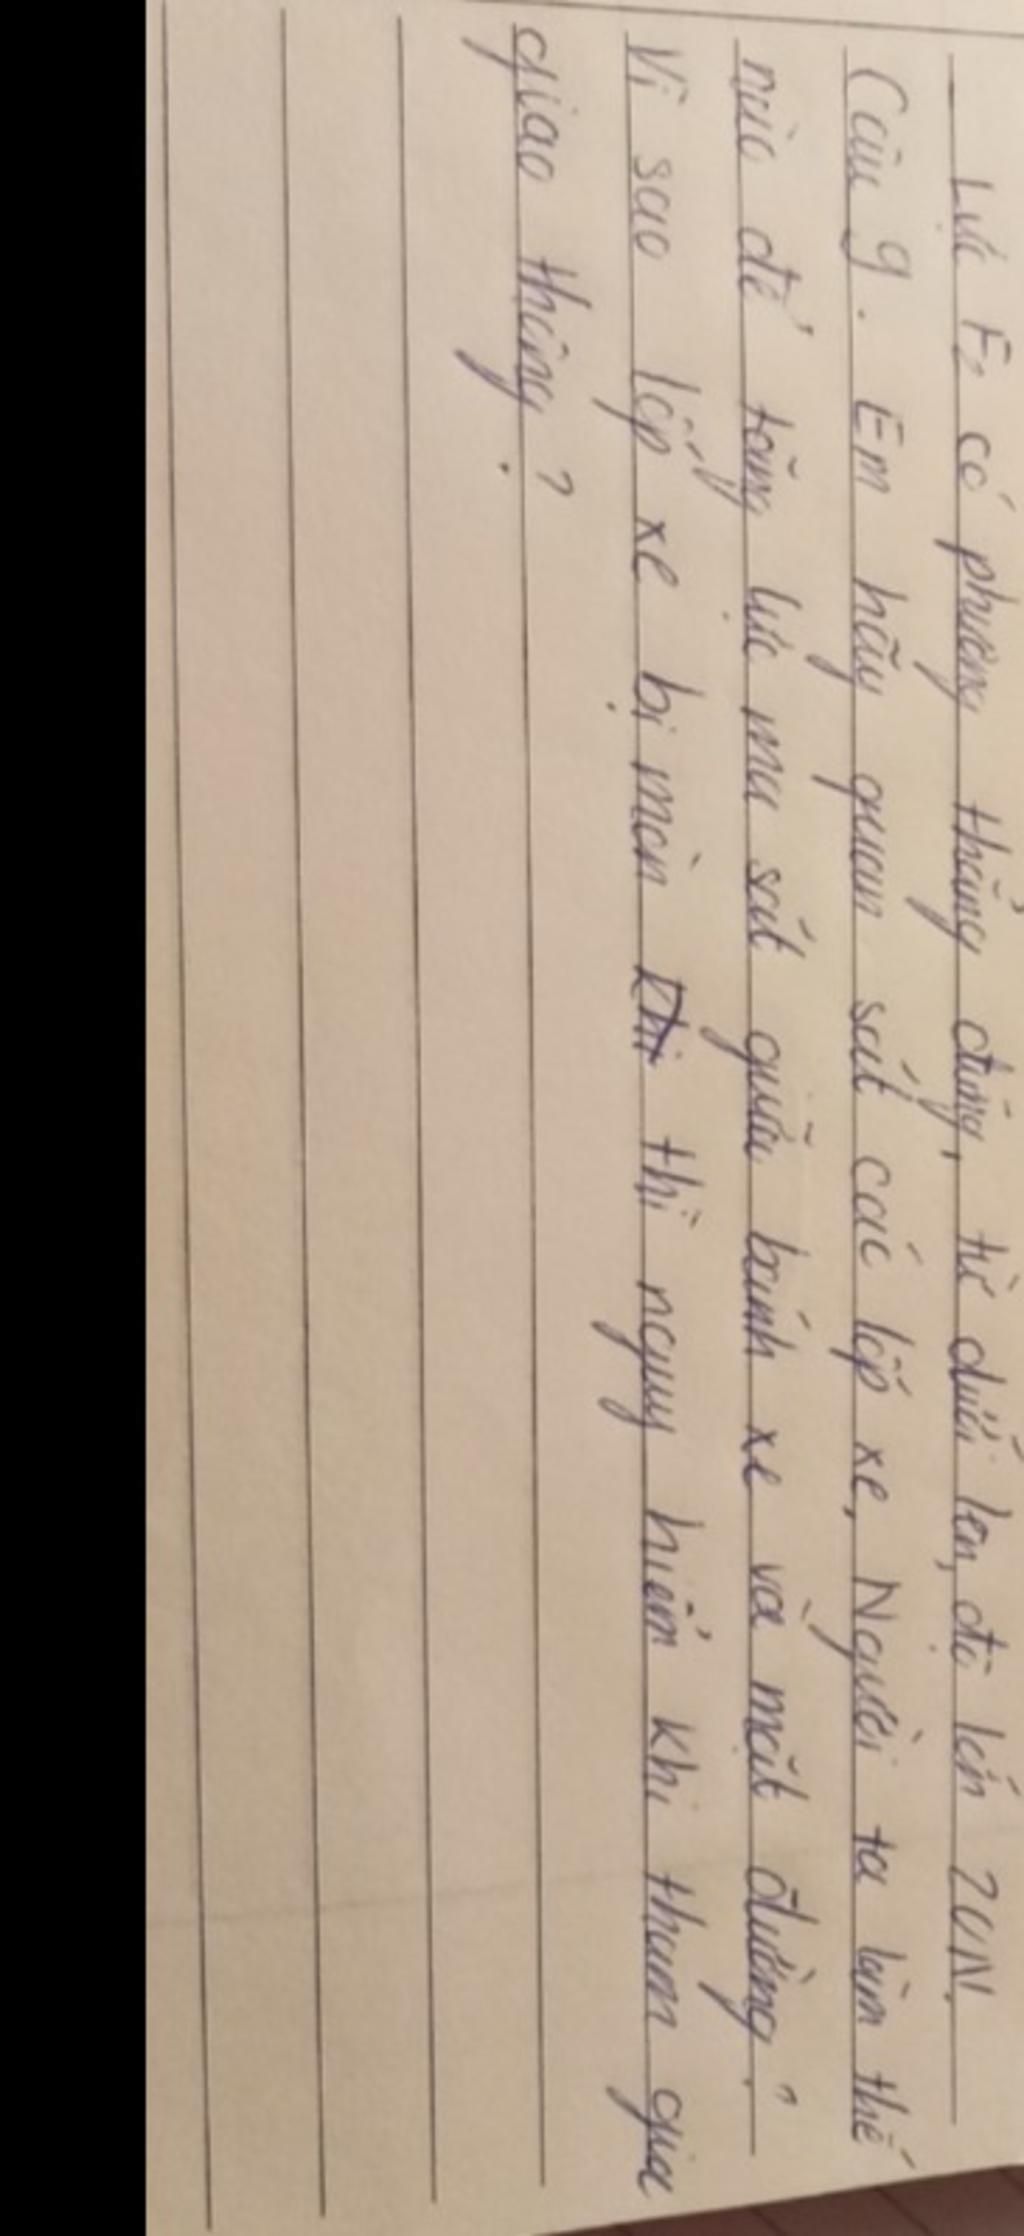 Lực F2 có phương thẳng đứng, từ dưới lên, độ lớn 20N.
Câu 9. Em hãy quan sát các lốp xe, Người ta làm thế
nào để tăng lực ma sát giữa bánh xe và mặt đường?
Vì sao lốp xe bị mòn khi thì nguy hiểm khi tham gia
giao thông?